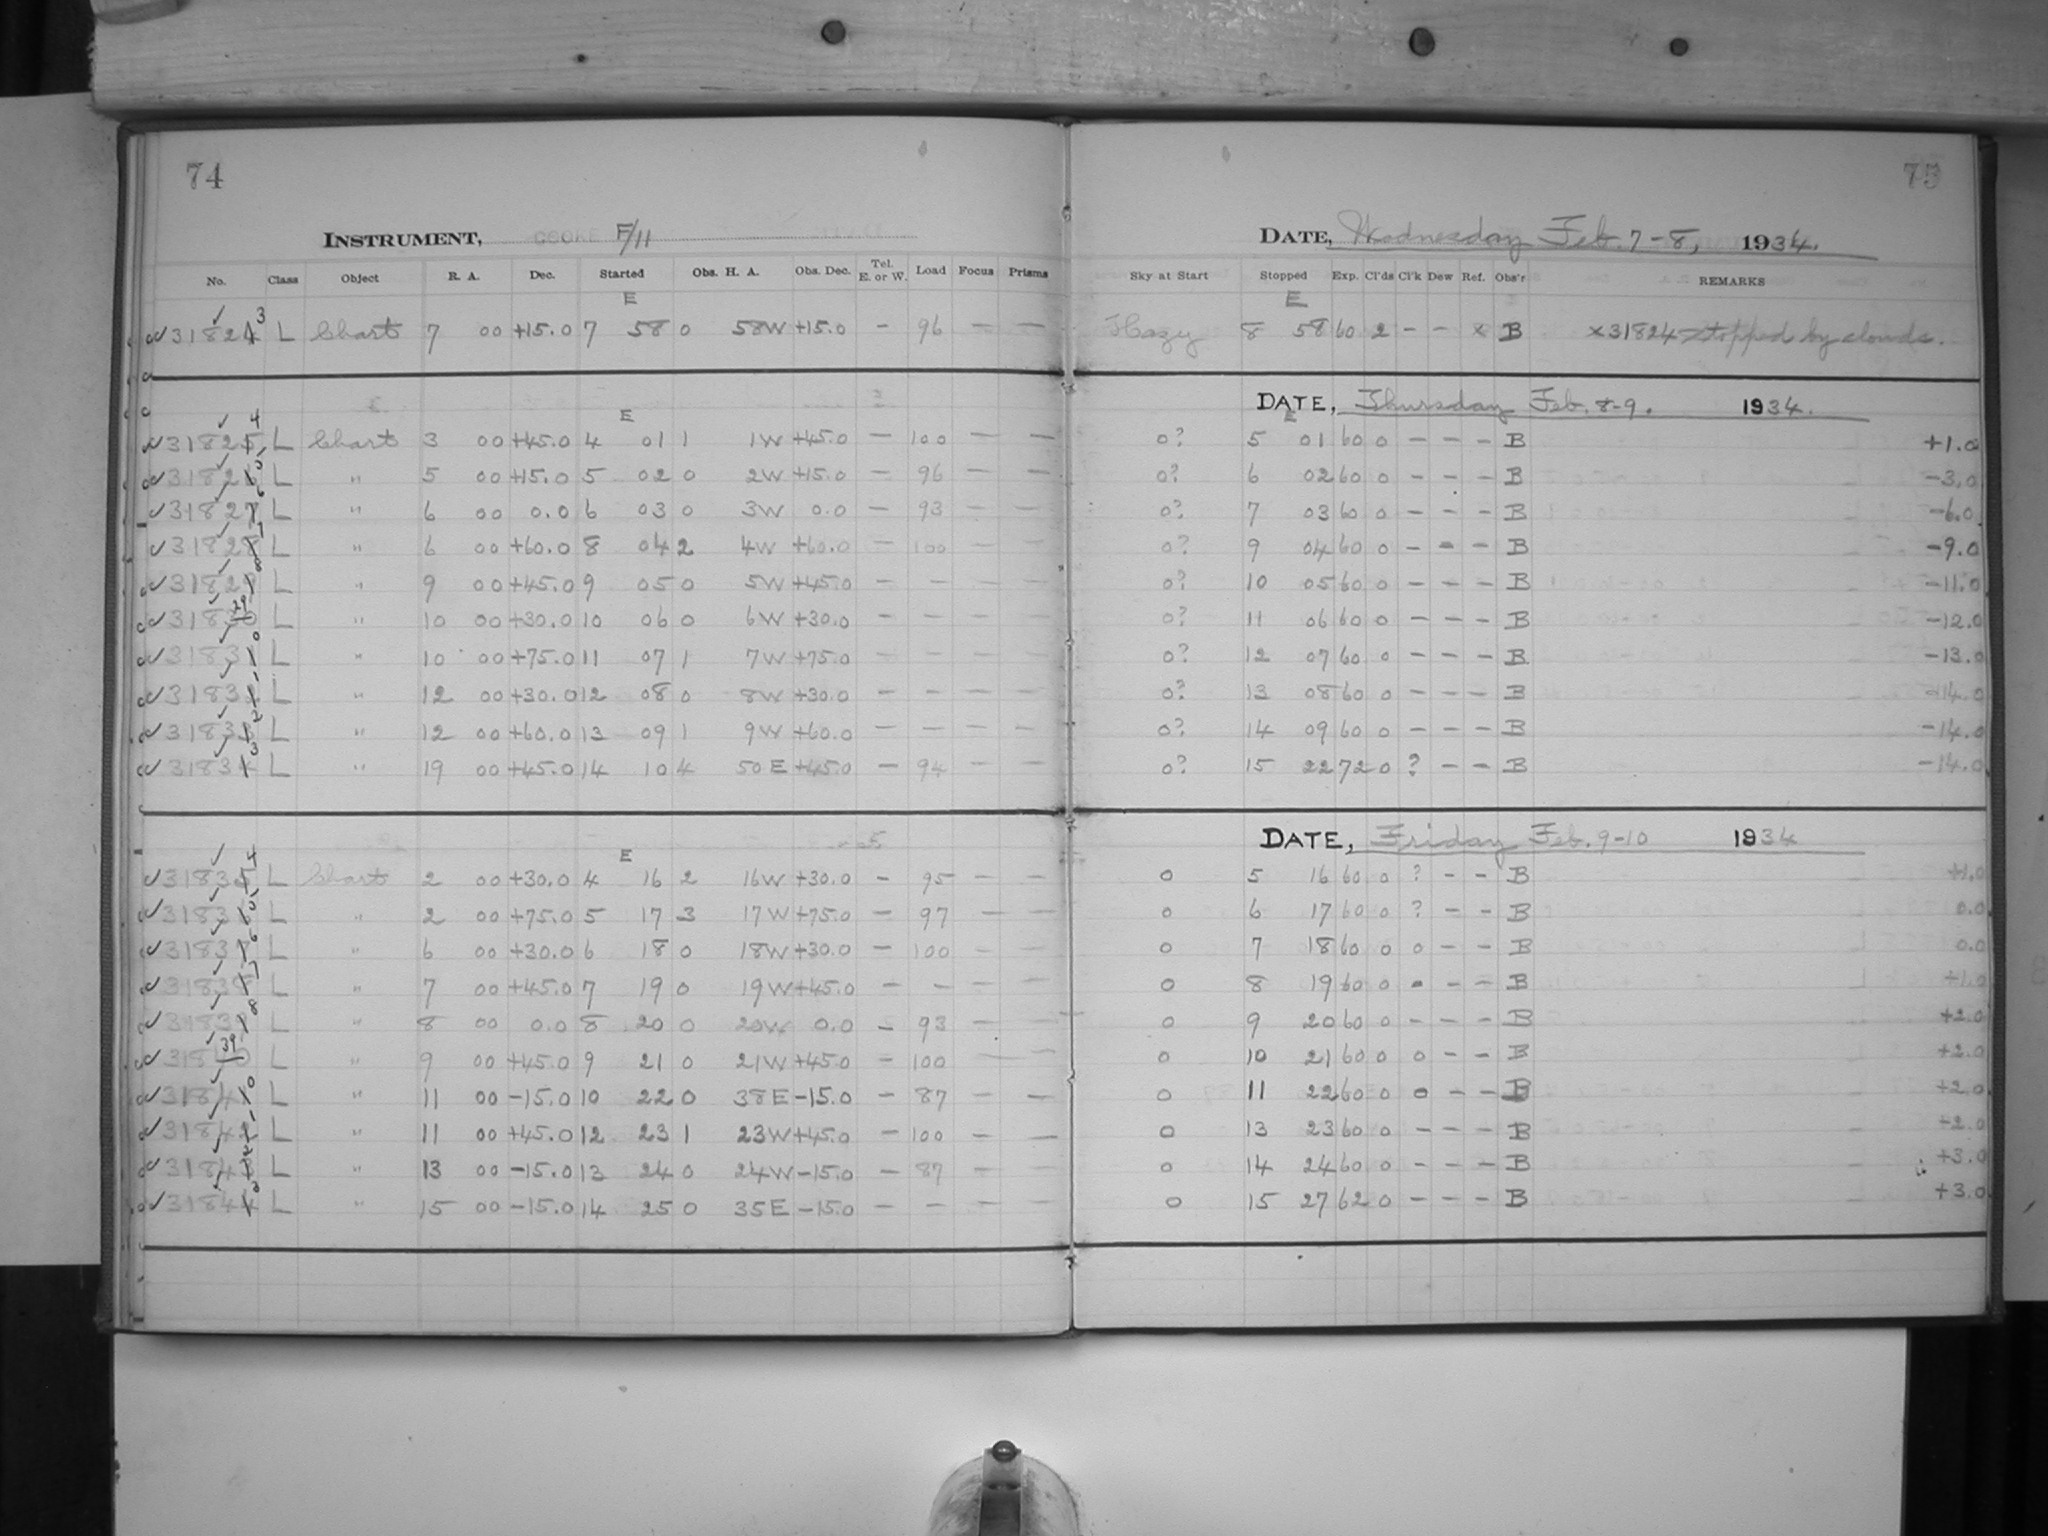 74
INSTRUMENT, COOKE F/11
No. Class Object R. A. Dec. Started Obs. H. A. Obs. Dec. Tel. E. or W. Load Focus Prisms
E
31824 3 L Chart 7 00 +15.0 7 58 0 58W +15.0 – 96 – –
E
31825 4 L Chart 3 00 +45.0 4 01 1 1W +45.0 – 100 – –
31826 5 L " 5 00 +15.0 5 02 0 2W +15.0 – 96 – –
31827 6 L " 6 00 0.0 6 03 0 3W 0.0 – 93 – –
31828 7 L " 6 00 +60.0 8 04 2 4W +60.0 – 100 – –
31829 8 L " 9 00 +45.0 9 05 0 5W +45.0 – – – –
31830 29 L " 10 00 +30.0 10 06 0 6W +30.0 – – – –
31831 0 L " 10 00 +75.0 11 07 1 7W +75.0 – – – –
31832 1 L " 12 00 +30.0 12 08 0 8W +30.0 – – – –
31833 2 L " 12 00 +60.0 13 09 1 9W +60.0 – – – –
31834 3 L " 19 00 +45.0 14 10 4 50E +45.0 – 94 – –
E
31835 4 L Chart 2 00 +30.0 4 16 2 16W +30.0 – 95 – –
31836 5 L " 2 00 +75.0 5 17 3 17W +75.0 – 97 – –
31837 6 L " 6 00 +30.0 6 18 0 18W +30.0 – 100 – –
31838 7 L " 7 00 +45.0 7 19 0 19W +45.0 – – – –
31839 8 L " 8 00 0.0 8 20 0 20W 0.0 – 93 – –
31840 39 L " 9 00 +45.0 9 21 0 21W +45.0 – 100 – –
31841 0 L " 11 00 –15.0 10 22 0 38E –15.0 – 87 – –
31842 1 L " 11 00 +45.0 12 23 1 23W +45.0 – 100 – –
31843 2 L " 13 00 –15.0 13 24 0 24W –15.0 – 87 – –
31844 3 L " 15 00 –15.0 14 25 0 35E –15.0 – – – –
75
DATE, Wednesday Feb. 7–8, 1934.
Sky at Start Stopped Exp. Cl'ds Cl'k Dew Ref. Obs'r REMARKS
E
Hazy 8 58 60 2 – – x B x31824 stopped by clouds.
DATE, Thursday Feb. 8–9. 1934.
E
0? 5 01 60 0 – – – B +1.0
0? 6 02 60 0 – – – B –3.0
0? 7 03 60 0 – – – B –6.0
0? 9 04 60 0 – – – B –9.0
0? 10 05 60 0 – – – B –11.0
0? 11 06 60 0 – – – B –12.0
0? 12 07 60 0 – – – B –13.0
0? 13 08 60 0 – – – B –14.0
0? 14 09 60 0 – – – B –14.0
0? 15 22 72 0 ? – – B –14.0
DATE, Friday Feb. 9–10 1934
0 5 16 60 0 ? – – B +1.0
0 6 17 60 0 ? – – B 0.0
0 7 18 60 0 0 – – B 0.0
0 8 19 60 0 – – – B +1.0
0 9 20 60 0 – – – B +2.0
0 10 21 60 0 0 – – B +2.0
0 11 22 60 0 0 – – B +2.0
0 13 23 60 0 – – – B +2.0
0 14 24 60 0 – – – B +3.0
0 15 27 62 0 – – – B +3.0